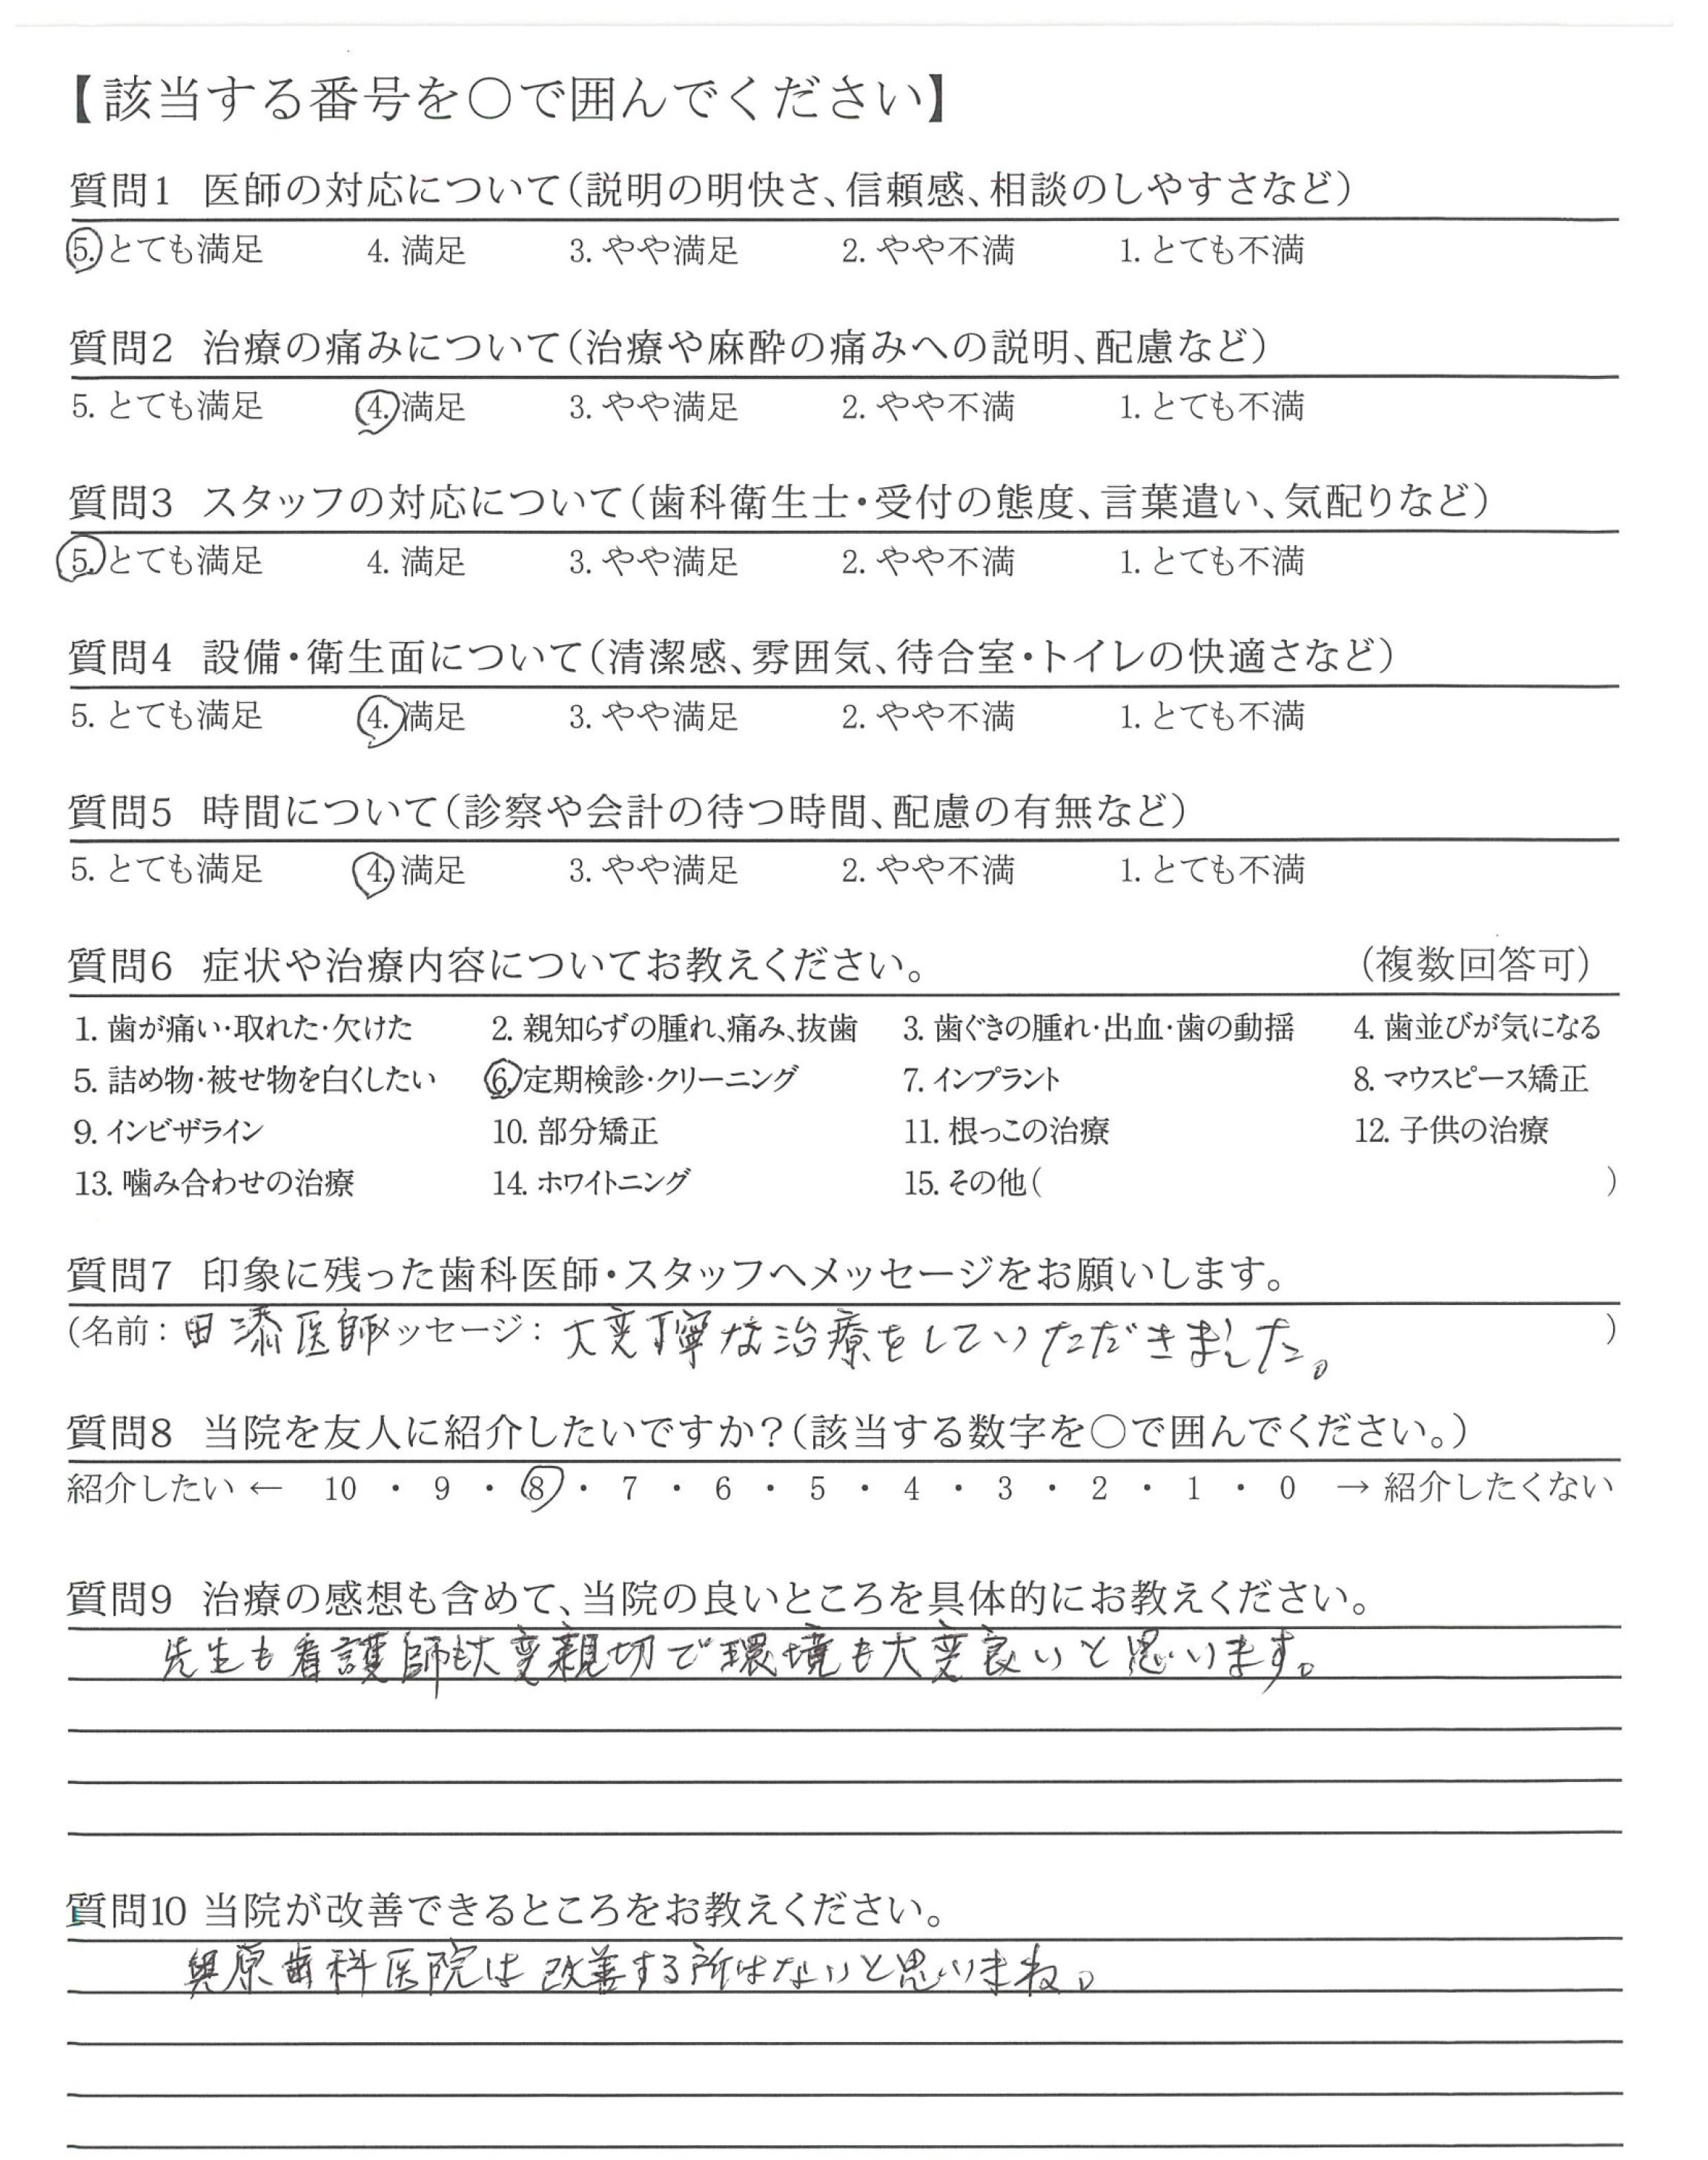 【該当する番号を○で囲んでください】
質問1 医師の対応について(説明の明快さ、信頼感、相談のしやすさなど)
5. とても満足 4. 満足 3. やや満足 2. やや不満 1. とても不満
質問2 治療の痛みについて(治療や麻酔の痛みへの説明、配慮など)
5. とても満足 4. 満足 3. やや満足 2. やや不満 1. とても不満
質問3 スタッフの対応について(歯科衛生士・受付の態度、言葉遣い、気配りなど)
5. とても満足 4. 満足 3. やや満足 2. やや不満 1. とても不満
質問4 設備・衛生面について(清潔感、雰囲気、待合室・トイレの快適さなど)
5. とても満足 4. 満足 3. やや満足 2. やや不満 1. とても不満
質問5 時間について(診察や会計の待つ時間、配慮の有無など)
5. とても満足 4. 満足 3. やや満足 2. やや不満 1. とても不満
質問6 症状や治療内容についてお教えください。 (複数回答可)
1. 歯が痛い・取れた・欠けた 2. 親知らずの腫れ、痛み、抜歯 3. 歯ぐきの腫れ・出血・歯の動揺 4. 歯並びが気になる
5. 詰め物・被せ物を白くしたい 6. 定期検診・クリーニング 7. インプラント 8. マウスピース矯正
9. インビザライン 10. 部分矯正 11. 根っこの治療 12. 子供の治療
13. 噛み合わせの治療 14. ホワイトニング 15. その他( )
質問7 印象に残った歯科医師・スタッフへメッセージをお願いします。
(名前: 田添医師 メッセージ: 大変丁寧な治療をしていただきました。 )
質問8 当院を友人に紹介したいですか?(該当する数字を○で囲んでください。)
紹介したい ← 10 ・ 9 ・ 8 ・ 7 ・ 6 ・ 5 ・ 4 ・ 3 ・ 2 ・ 1 ・ 0 → 紹介したくない
質問9 治療の感想も含めて、当院の良いところを具体的にお教えください。
先生も看護師も大変親切で環境も大変良いと思います。
質問10 当院が改善できるところをお教えください。
奥原歯科医院は改善する所はないと思いまね。